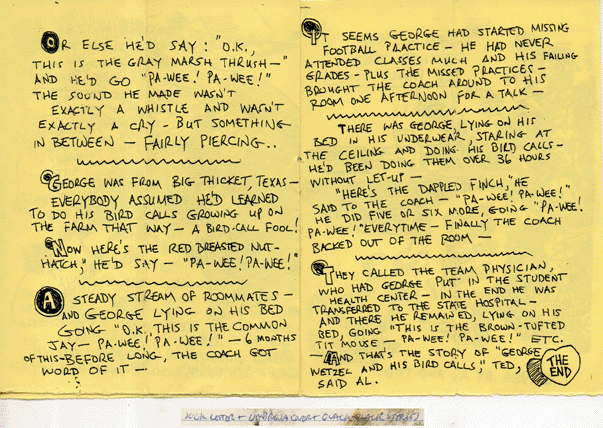 OR ELSE HE'D SAY: "O.K.,
THIS IS THE GRAY MARSH THRUSH—"
AND HE'D GO "PA-WEE! PA-WEE!"
THE SOUND HE MADE WASN'T
EXACTLY A WHISTLE AND WASN'T
EXACTLY A CRY - BUT SOMETHING
IN BETWEEN — FAIRLY PIERCING..
GEORGE WAS FROM BIG THICKET, TEXAS—
EVERYBODY ASSUMED HE'D LEARNED
TO DO HIS BIRD CALLS GROWING UP ON
THE FARM THAT WAY — A BIRD-CALL FOOL!
NOW HERE'S THE RED BREASTED NUT-
HATCH," HE'D SAY — "PA-WEE! PA-WEE!"
A STEADY STREAM OF ROOMMATES —
AND GEORGE LYING ON HIS BED
GOING "O.K., THIS IS THE COMMON
JAY— PA-WEE! PA-WEE!" — 6 MONTHS
OF THIS-BEFORE LONG, THE COACH GOT
WORD OF IT —
IT SEEMS GEORGE HAD STARTED MISSING
FOOTBALL PRACTICE — HE HAD NEVER
ATTENDED CLASSES MUCH AND HIS FAILING
GRADES - PLUS THE MISSED PRACTICES -
BROUGHT THE COACH AROUND TO HIS
ROOM ONE AFTERNOON FOR A TALK —
THERE WAS GEORGE, LYING ON HIS
BED IN HIS UNDERWEAR, STARING AT
THE CEILING AND DOING HIS BIRD CALLS-
HE'D BEEN DOING THEM OVER 36 HOURS
WITHOUT LET-UP —
"HERE'S THE DAPPLED FINCH," HE
SAID TO THE COACH — "PA-WEE! PA-WEE!"
HE DID FIVE OR SIX MORE, GOING "PA-WEE!
PA-WEE!" EVERYTIME — FINALLY THE COACH
BACKED OUT OF THE ROOM —
THEY CALLED THE TEAM PHYSICIAN,
WHO HAD GEORGE PUT IN THE STUDENT
HEALTH CENTER — IN THE END HE WAS
TRANSFERRED TO THE STATE HOSPITAL —
AND THERE HE REMAINED, LYING ON HIS
BED, GOING "THIS IS THE BROWN-TUFTED
TIT MOUSE — PA-WEE! PA-WEE!" ETC.
—AND THAT'S THE STORY OF "GEORGE
WETZEL AND HIS BIRD CALLS," TED,
SAID AL.
THE
END